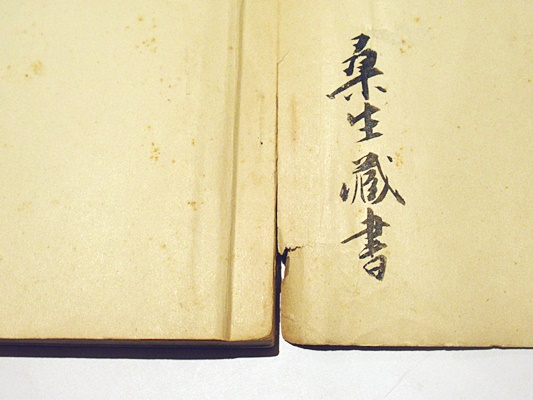 桑生藏書